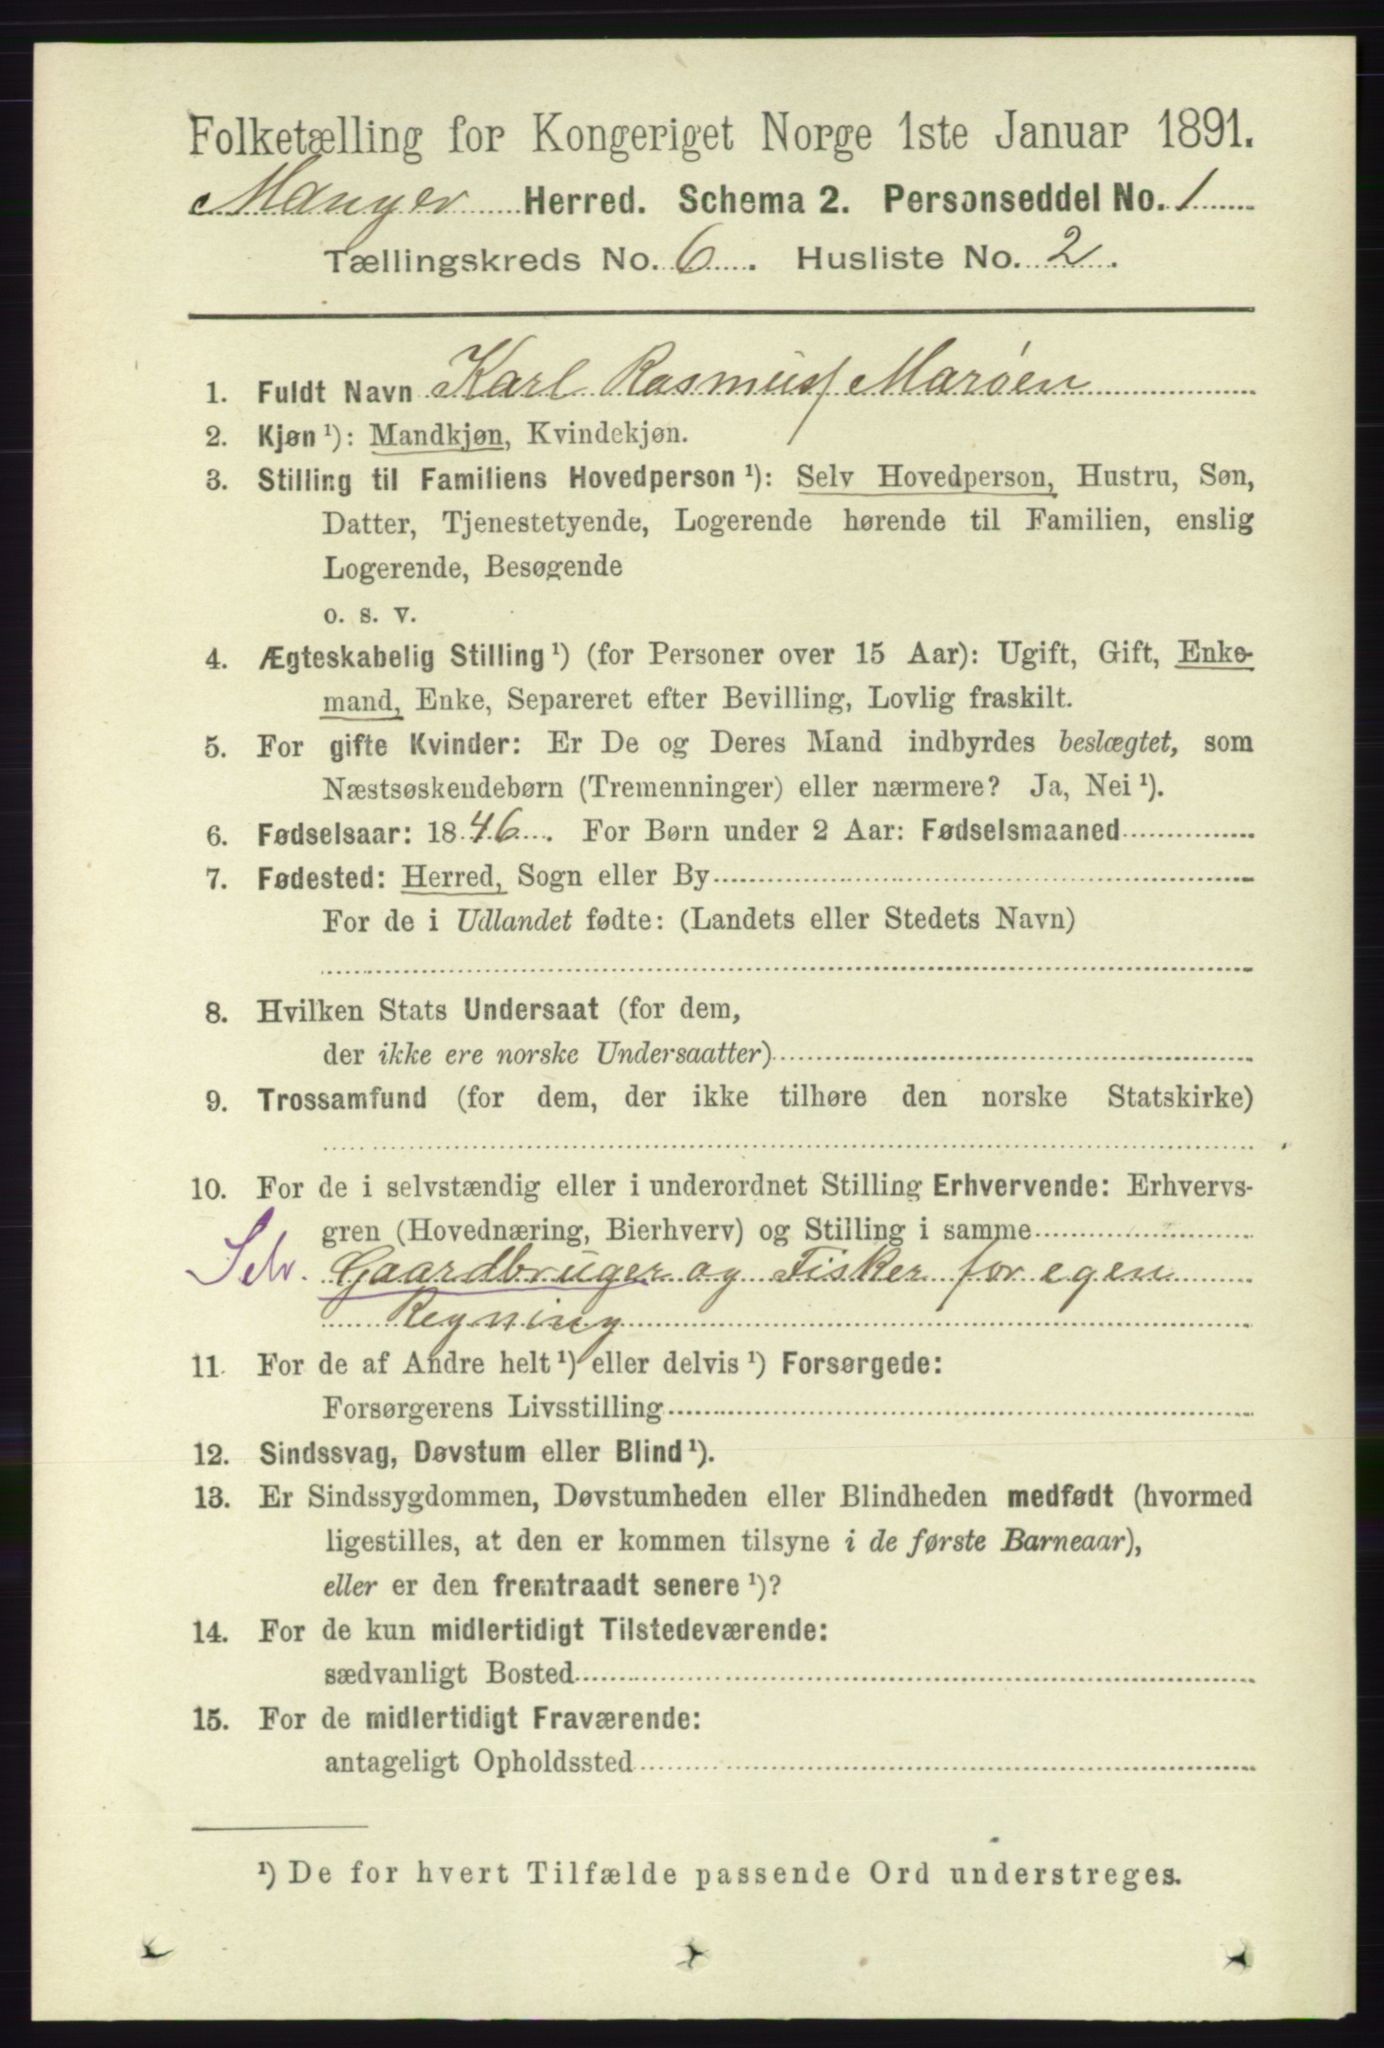 Folketælling for Kongeriget Norge 1ste Januar 1891.
Manger Herred. Schema 2. Personseddel No. 1
Tællingskreds No. 6. Husliste No. 2.
1. Fuldt Navn Karl Rasmuss Marøen
2. Kjøn¹): Mandkjøn, Kvindekjøn.
3. Stilling til Familiens Hovedperson¹): Selv Hovedperson, Hustru, Søn,
Datter, Tjenestetyende, Logerende hørende til Familien, enslig
Logerende, Besøgende
o. s. v.
4. Ægteskabelig Stilling¹) (for Personer over 15 Aar): Ugift, Gift, Enke-
mand, Enke, Separeret efter Bevilling, Lovlig fraskilt.
5. For gifte Kvinder: Er De og Deres Mand indbyrdes beslægtet, som
Næstsøskendebørn (Tremenninger) eller nærmere? Ja, Nei¹).
6. Fødselsaar: 1846. For Børn under 2 Aar: Fødselsmaaned
7. Fødested: Herred, Sogn eller By
For de i Udlandet fødte: (Landets eller Stedets Navn)
8. Hvilken Stats Undersaat (for dem,
der ikke ere norske Undersaatter)
9. Trossamfund (for dem, der ikke tilhøre den norske Statskirke)
10. For de i selvstændig eller i underordnet Stilling Erhvervende: Erhvervs-
gren (Hovednæring, Bierhverv) og Stilling i samme
Selv. Gaardbruger og Fisker for egen
Regning
11. For de af Andre helt¹) eller delvis¹) Forsørgede:
Forsørgerens Livsstilling
12. Sindssvag, Døvstum eller Blind¹).
13. Er Sindssygdommen, Døvstumheden eller Blindheden medfødt (hvormed
ligestilles, at den er kommen tilsyne i de første Barneaar),
eller er den fremtraadt senere¹)?
14. For de kun midlertidigt Tilstedeværende:
sædvanligt Bosted
15. For de midlertidigt Fraværende:
antageligt Opholdssted
¹) De for hvert Tilfælde passende Ord understreges.